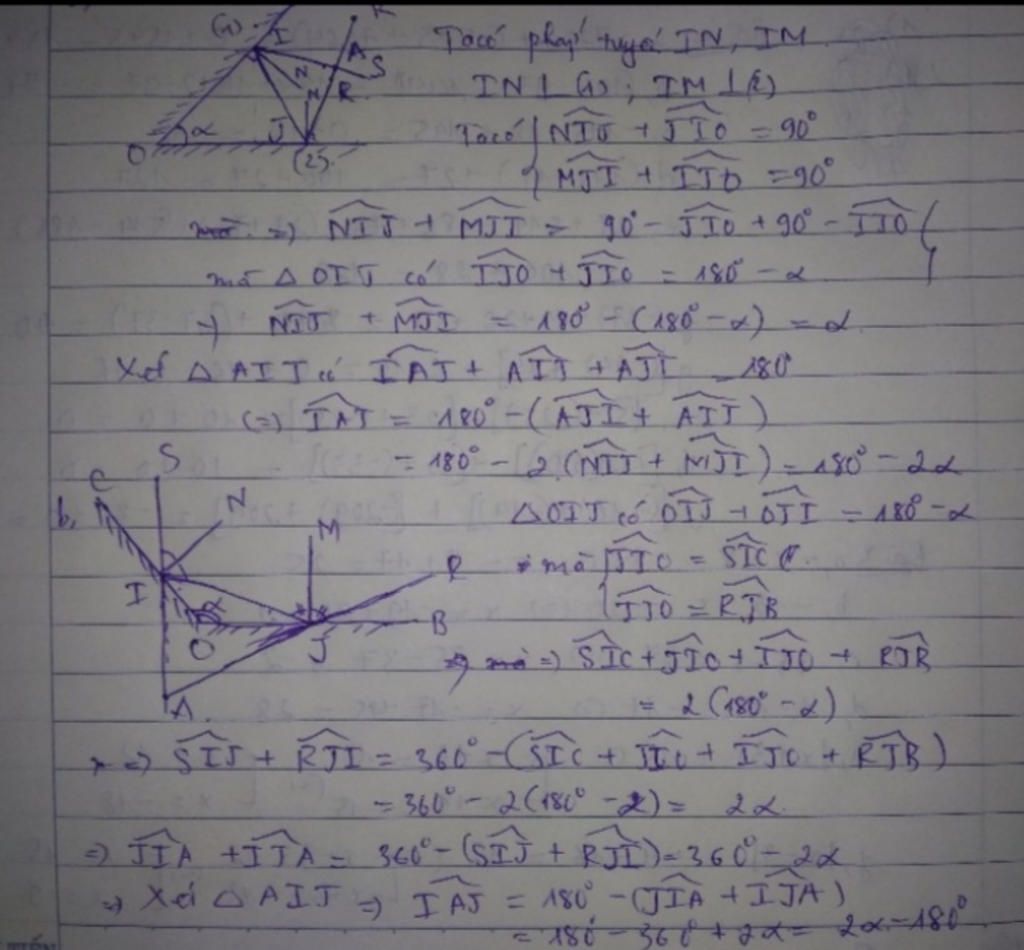 (1) I R
A
S
N
R
O α J
(2)
Ta có pháp tuyến IN, IM
IN ⊥ (1) ; IM ⊥ (2)
Ta có { NIJ + JIO = 90°
MJI + IJO = 90°
=> NIJ + MJI = 90° - JIO + 90° - IJO
mà △ OIJ có IJO + JIO = 180° - α
=> NIJ + MJI = 180° - (180° - α) = α
Xét △ AIJ có IAJ + AIJ + AJI = 180°
(=) IAJ = 180° - (AJI + AIJ)
= 180° - 2(NIJ + MJI) = 180° - 2α
b, C S N M R
I α O J B
A
△ OIJ có OIJ + OJI = 180° - α
mà { JIO = SIC
IJO = RJB
=> SIC + JIO + IJO + RJB
= 2(180° - α)
=> SIJ + RJI = 360° - (SIC + JIO + IJO + RJB)
= 360° - 2(180° - 2) = 2α
=> JIA + IJA = 360° - (SIJ + RJI) = 360° - 2α
=> Xét △ AIJ => IAJ = 180° - (JIA + IJA)
= 180 - 360° + 2α = 2α - 180°